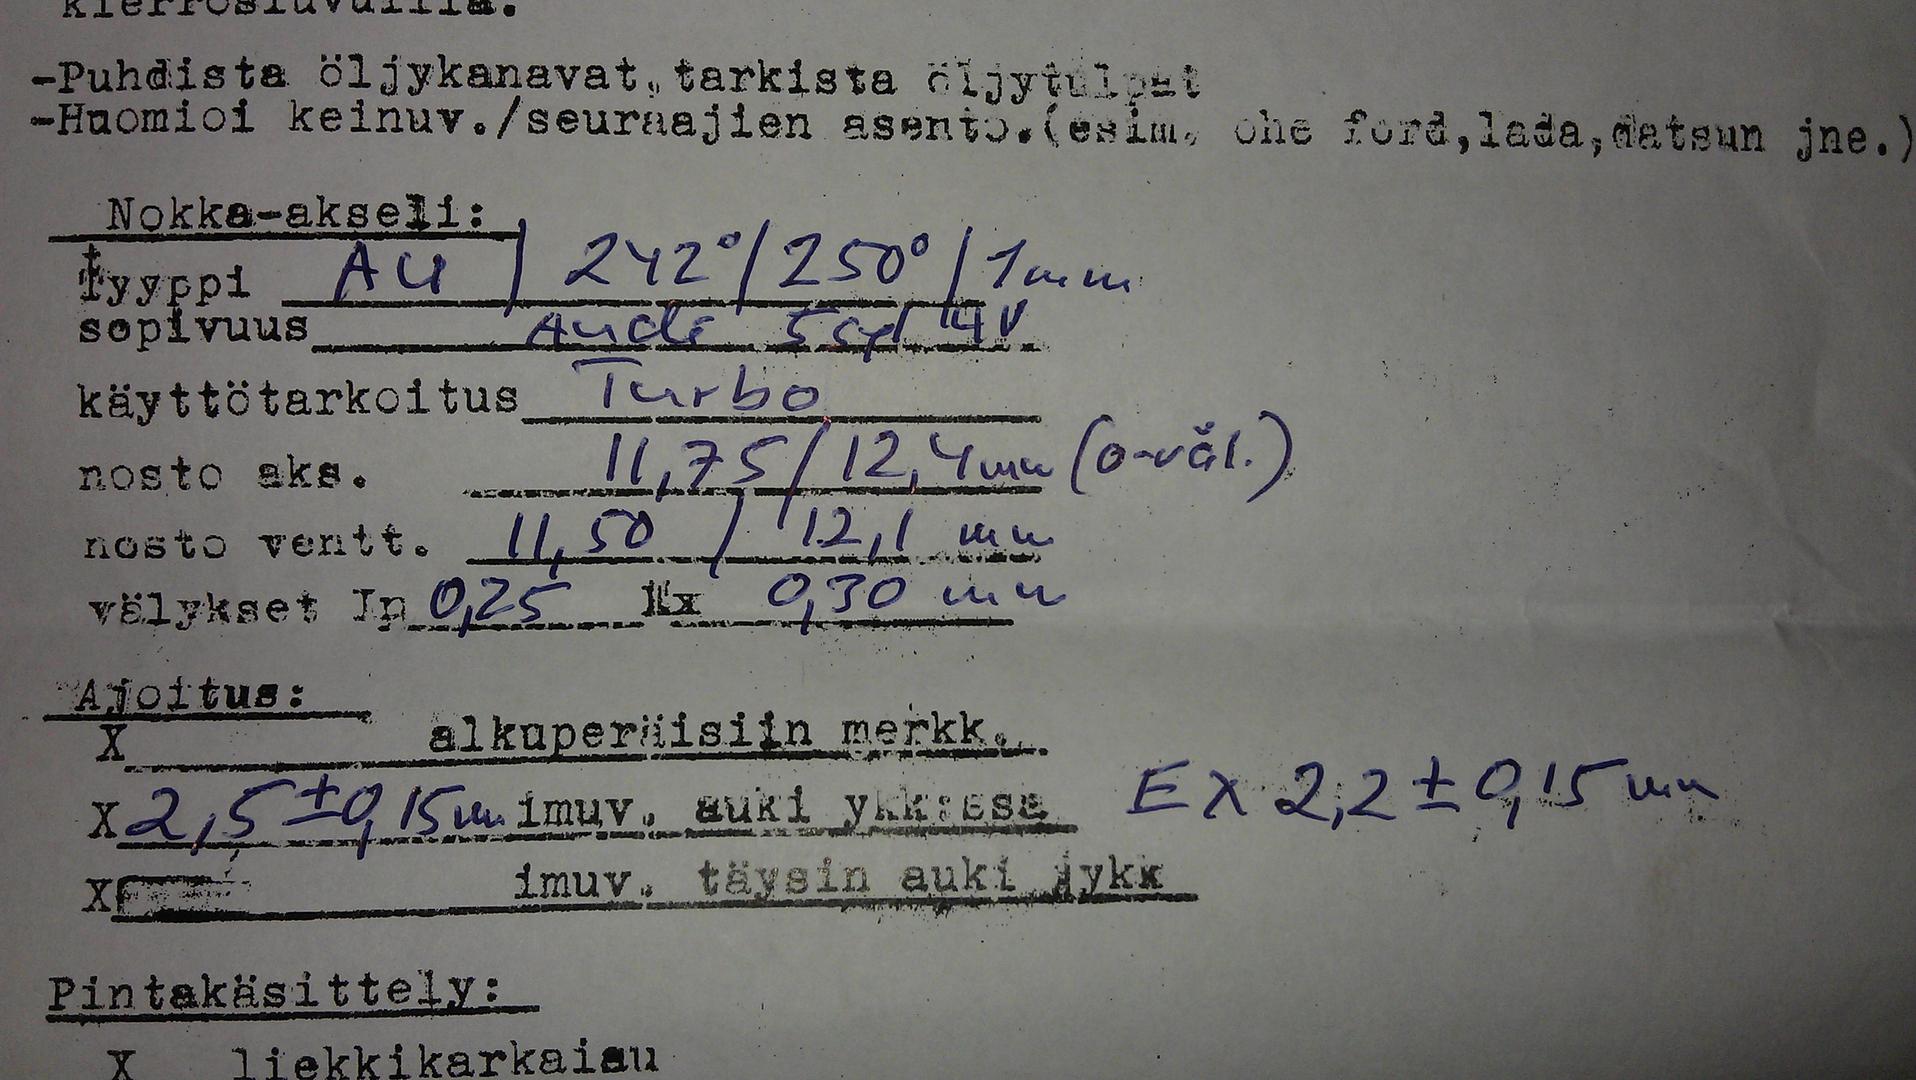 -Puhdista öljykanavat, tarkista öljytulpat
-Huomioi keinuv./seuraajien asento.(esim. ohc ford,lada,datsun jne.)
Nokka-akseli:
tyyppi AU / 242°/250°/1mm
sopivuus Audi 5cyl 4V
käyttötarkoitus Turbo
nosto aks. 11,75/12,4mm (0-väl.)
nosto ventt. 11,50 / 12,1 mm
välykset In 0,25 Ex 0,30 mm
Ajoitus:
X alkuperäisiin merkk.
X 2,5±0,15m imuv. auki ykk:ssa EX 2,2±0,15mm
X imuv. täysin auki jykk
Pintakäsittely:
X liekkikarkaisu